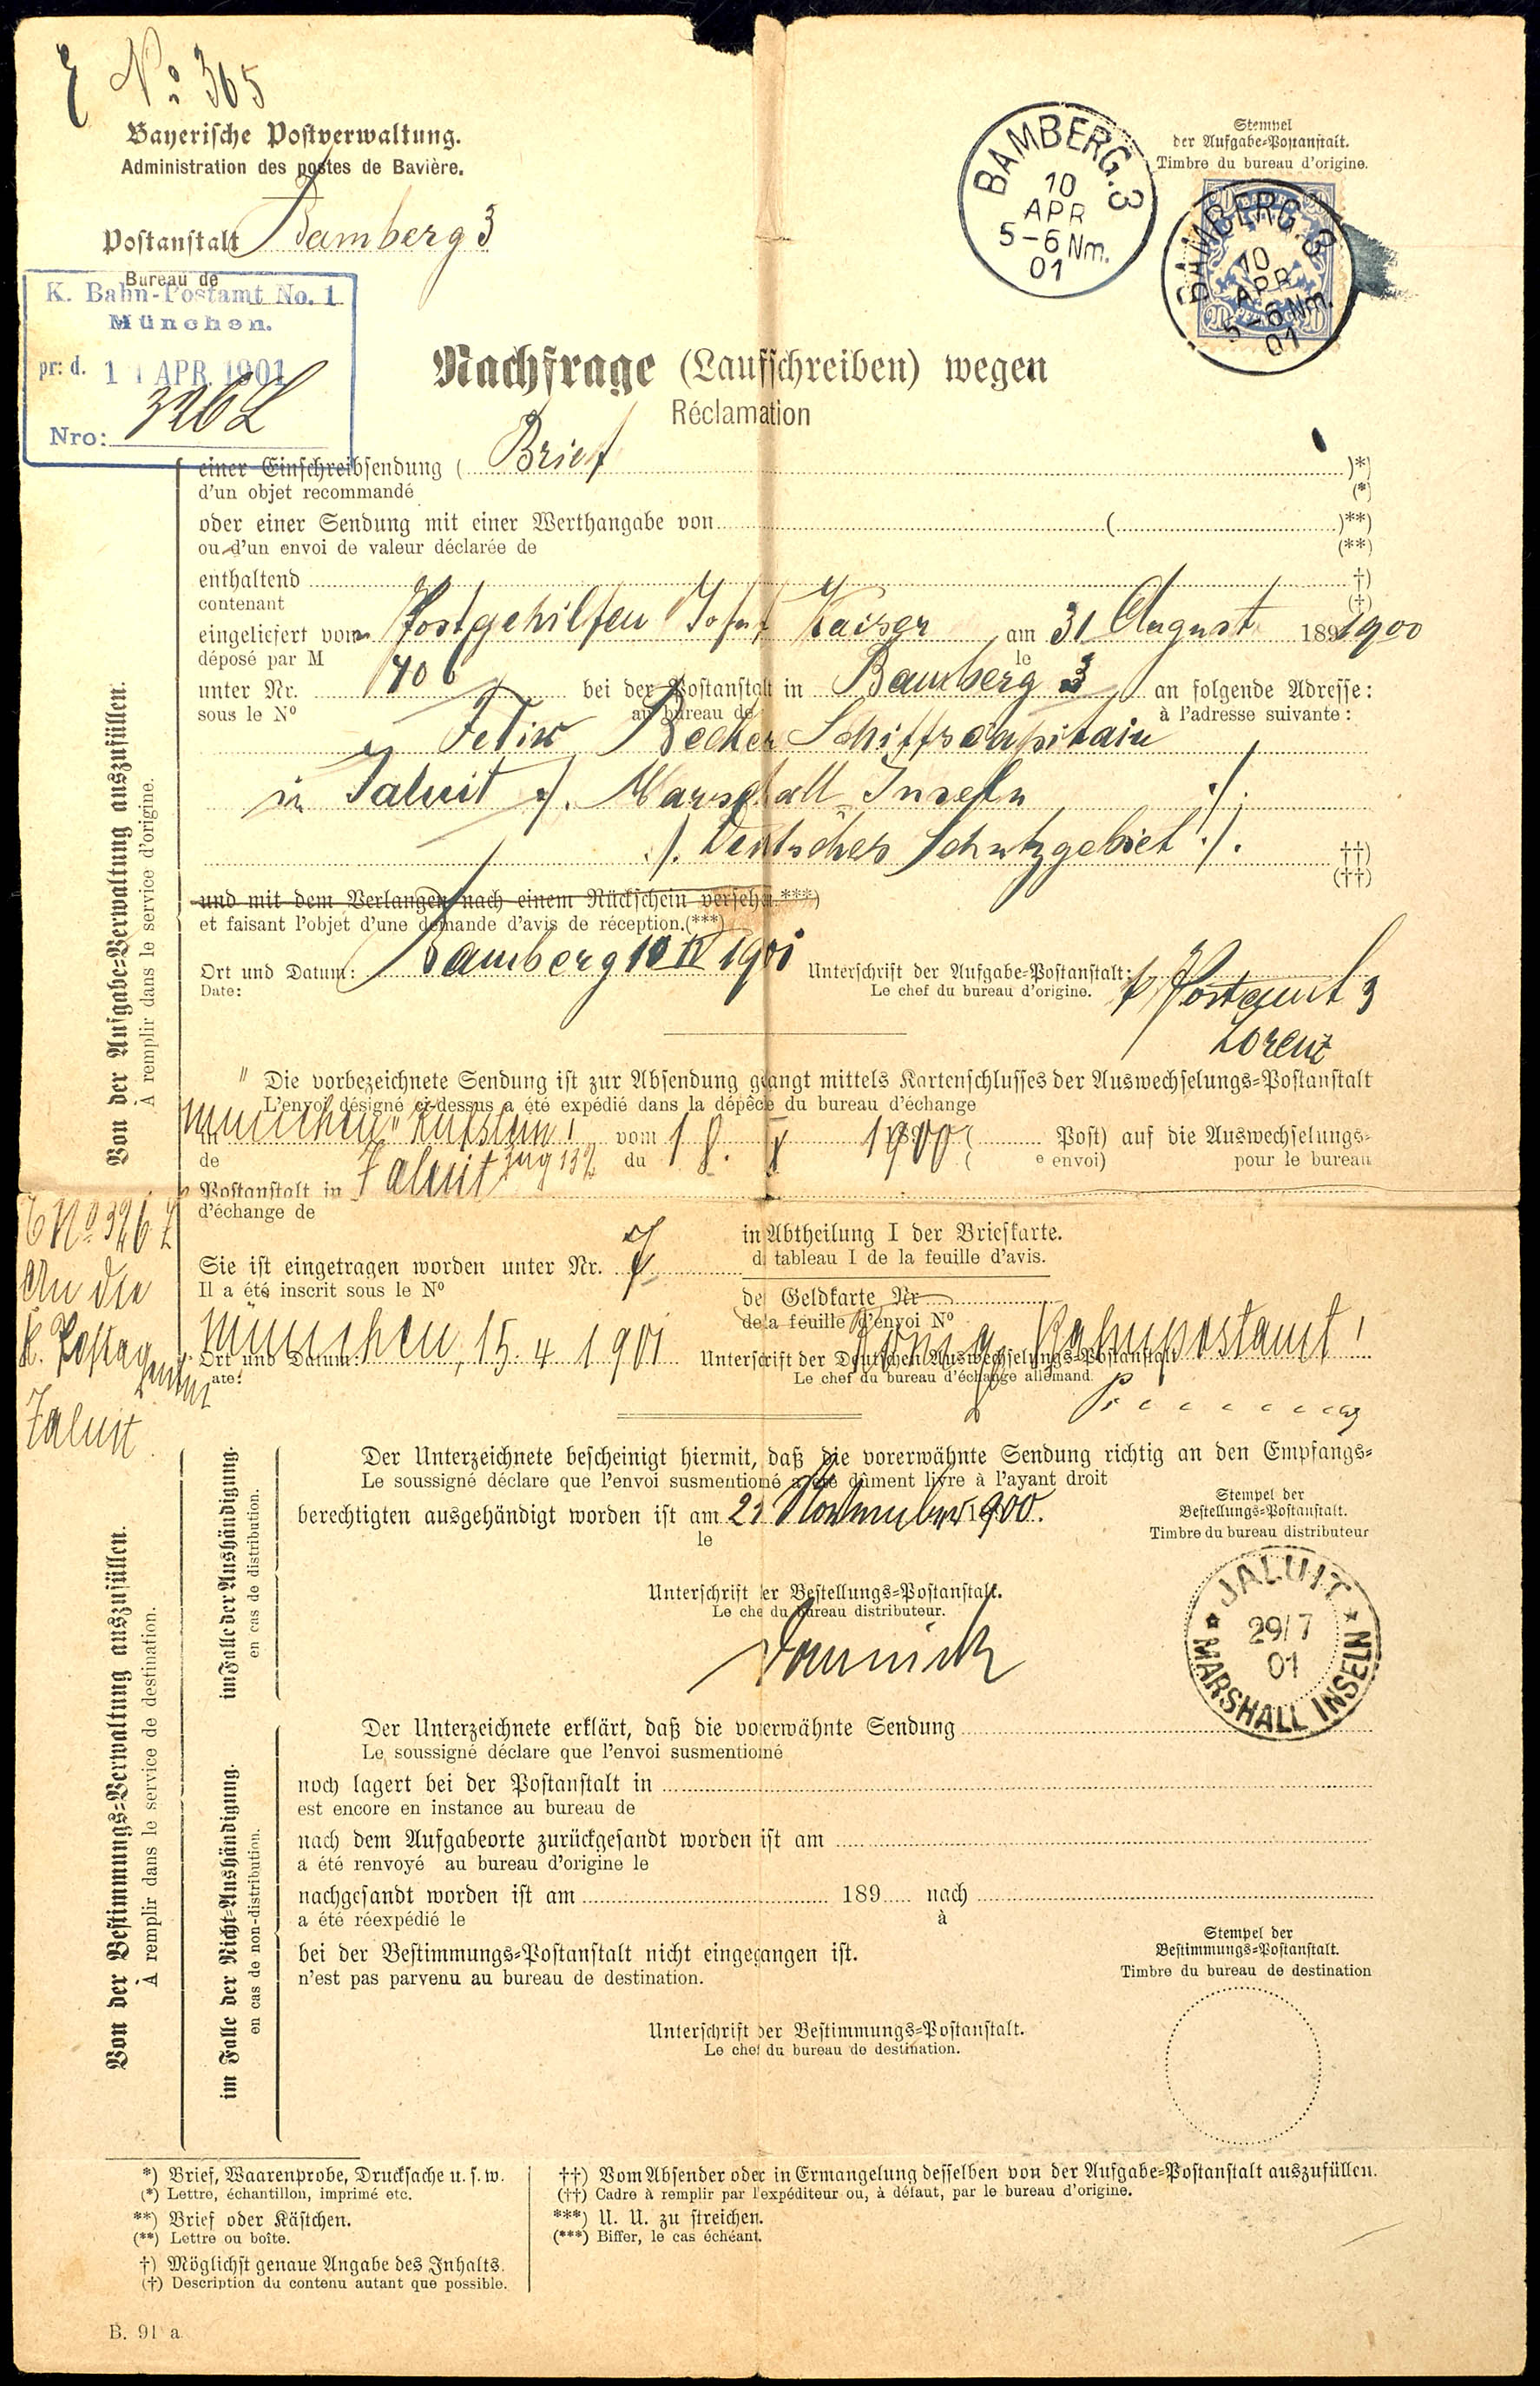 No 305
Bayerische Postverwaltung.
Administration des postes de Bavière.
Postanstalt Bamberg 3
Bureau de
K. Bahn-Postamt No. 1
München.
pr: d. 11 APR. 1901
Nro: 326 L
BAMBERG.3
10
APR
5-6 Nm.
01
Stempel
der Aufgabe-Postanstalt.
Timbre du bureau d'origine.
BAMBERG.3
10
APR
5-6 Nm.
01
Nachfrage (Laufschreiben) wegen
Réclamation
einer Einschreibsendung ( Brief )*)
d'un objet recommandé (*)
oder einer Sendung mit einer Werthangabe von ( )**)
ou d'un envoi de valeur déclarée de (**)
enthaltend †)
contenant (†)
eingeliefert vom Postgehilfen Josef Kaiser am 31 August 1900
déposé par M le
unter Nr. 406 bei der Postanstalt in Bamberg 3 an folgende Adresse:
sous le No au bureau de à l'adresse suivante:
Felix Becker Schiffscapitain
in Jaluit ./. Marschall Inseln ./.
./. Deutsches Schutzgebiet ./. ††)
(††)
und mit dem Verlangen nach einem Rückschein versehen.***)
et faisant l'objet d'une demande d'avis de réception.(***)
Ort und Datum: Bamberg 10 IV 1901 Unterschrift der Aufgabe-Postanstalt:
Date: Le chef du bureau d'origine.
Postamt 3
Lorenz
Von der Aufgabe-Verwaltung auszufüllen.
À remplir dans le service d'origine.
Die vorbezeichnete Sendung ist zur Absendung glangt mittels Kartenschlusses der Auswechselungs-Postanstalt
L'envoi désigné ci-dessus a été expédié dans la dépêche du bureau d'échange
München Kufstein vom 1900 ( Post) auf die Auswechselungs-
de Zug 132 du ( e envoi) pour le bureau
Postanstalt in Jaluit
d'échange de
Sie ist eingetragen worden unter Nr. 7 in Abtheilung I der Briefkarte.
Il a été inscrit sous le No d tableau I de la feuille d'avis.
de Geldkarte Nr
de la feuille d'envoi No
München, 15. 4 1901 Königl Bahnpostamt I
Ort und Datum: Unterschrift der Deutschen Auswechselungs-Postanstalt
ate: Le chef du bureau d'échange allemand.
No 326 L
An die
K. Postagentur
Jaluit
Der Unterzeichnete bescheinigt hiermit, daß die vorerwähnte Sendung richtig an den Empfangs-
Le soussigné déclare que l'envoi susmentionné a été dûment livre à l'ayant droit
berechtigten ausgehändigt worden ist am 23 November 1900.
le
Stempel der
Bestellungs-Postanstalt.
Timbre du bureau distributeur
Unterschrift der Bestellungs-Postanstalt.
Le chef du bureau distributeur.
JALUIT
29/7
01
MARSHALL INSELN
im Falle der Aushändigung.
en cas de distribution.
Von der Bestimmungs-Verwaltung auszufüllen.
À remplir dans le service de destination.
Der Unterzeichnete erklärt, daß die vorerwähnte Sendung
Le soussigné déclare que l'envoi susmentionné
noch lagert bei der Postanstalt in
est encore en instance au bureau de
nach dem Aufgabeorte zurückgesandt worden ist am
a été renvoyé au bureau d'origine le
nachgesandt worden ist am 189 nach
a été réexpédié le à
bei der Bestimmungs-Postanstalt nicht eingegangen ist.
n'est pas parvenu au bureau de destination.
Stempel der
Bestimmungs-Postanstalt.
Timbre du bureau de destination
Unterschrift der Bestimmungs-Postanstalt.
Le chef du bureau de destination.
im Falle der Nicht-Aushändigung.
en cas de non-distribution.
*) Brief, Waarenprobe, Drucksache u. s. w.
(*) Lettre, échantillon, imprimé etc.
**) Brief oder Kästchen.
(**) Lettre ou boîte.
†) Möglichst genaue Angabe des Inhalts.
(†) Description du contenu autant que possible.
††) Vom Absender oder in Ermangelung desselben von der Aufgabe-Postanstalt auszufüllen.
(††) Cadre à remplir par l'expéditeur ou, à défaut, par le bureau d'origine.
***) U. U. zu streichen.
(***) Biffer, le cas échéant.
B. 91 a